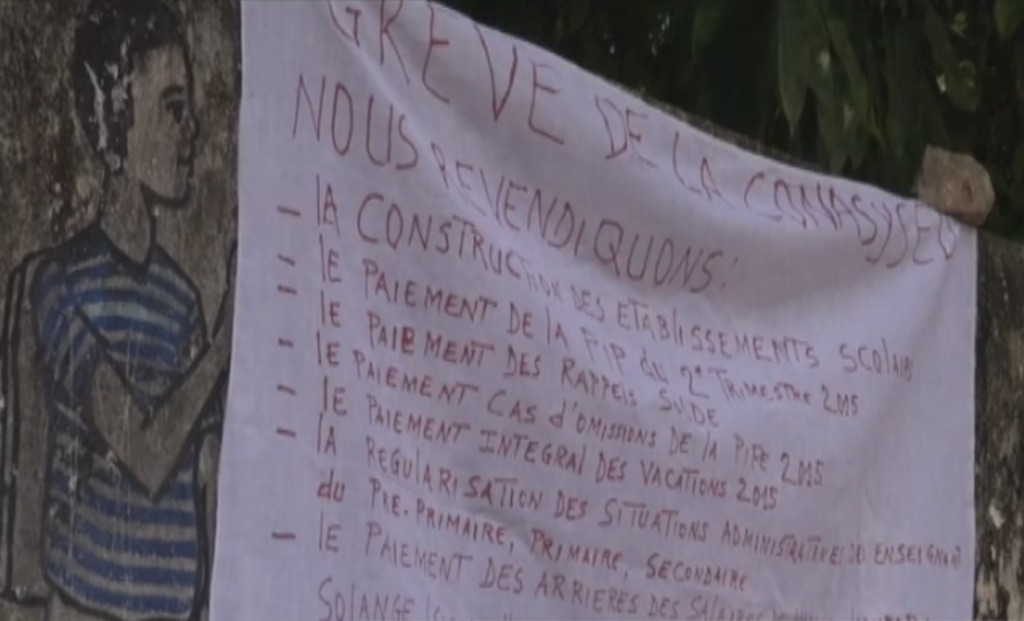 GREVE DE LA CONASYSED
NOUS REVENDIQUONS:
- lA CONSTRUCTION DES ETABLISSEMENTS SCOLAIRE
- lE PAIEMENT DE lA PIP du 2e TRIMESTRE 2015
- lE PAIEMENT DES RAPPELS SUDE
- lE PAIEMENT CAS d'OMISSIONS DE lA PIFE 2015
- lE PAIEMENT INTEGRAL DES VACATIONS 2015
- lA REGULARISATION DES SITUATIONS ADMINISTRATIVES
du PRE-PRIMAIRE, PRIMAIRE, SECONDAIRE
- lE PAIEMENT DES ARRIERES DES
SOLANGE